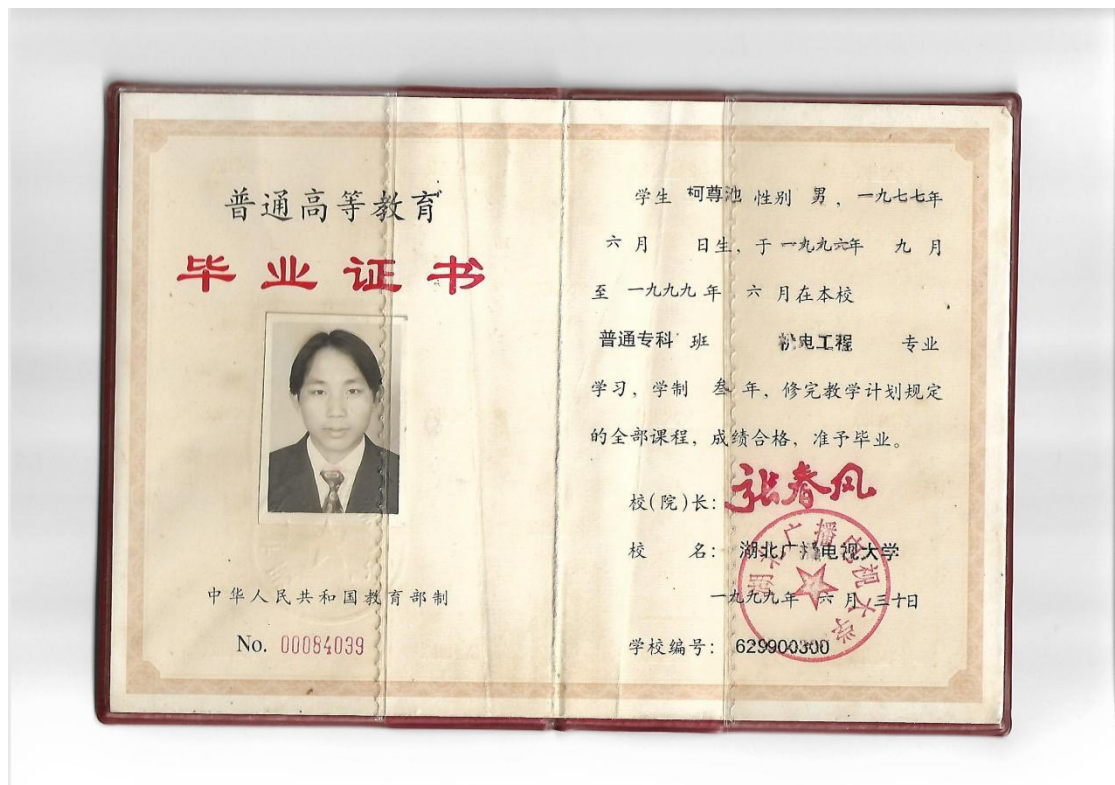 普通高等教育
毕业证书
中华人民共和国教育部制
No. 00084039
学生 柯尊池 性别 男，一九七七年
六月 日生，于 一九九六年 九月
至 一九九九年 六月在本校
普通专科 班 机电工程 专业
学习，学制 叁 年，修完教学计划规定
的全部课程，成绩合格，准予毕业。
校(院)长：张春风
校 名：湖北广播电视大学
一九九九年 六月 三十日
学校编号：629900300
湖北广播电视大学